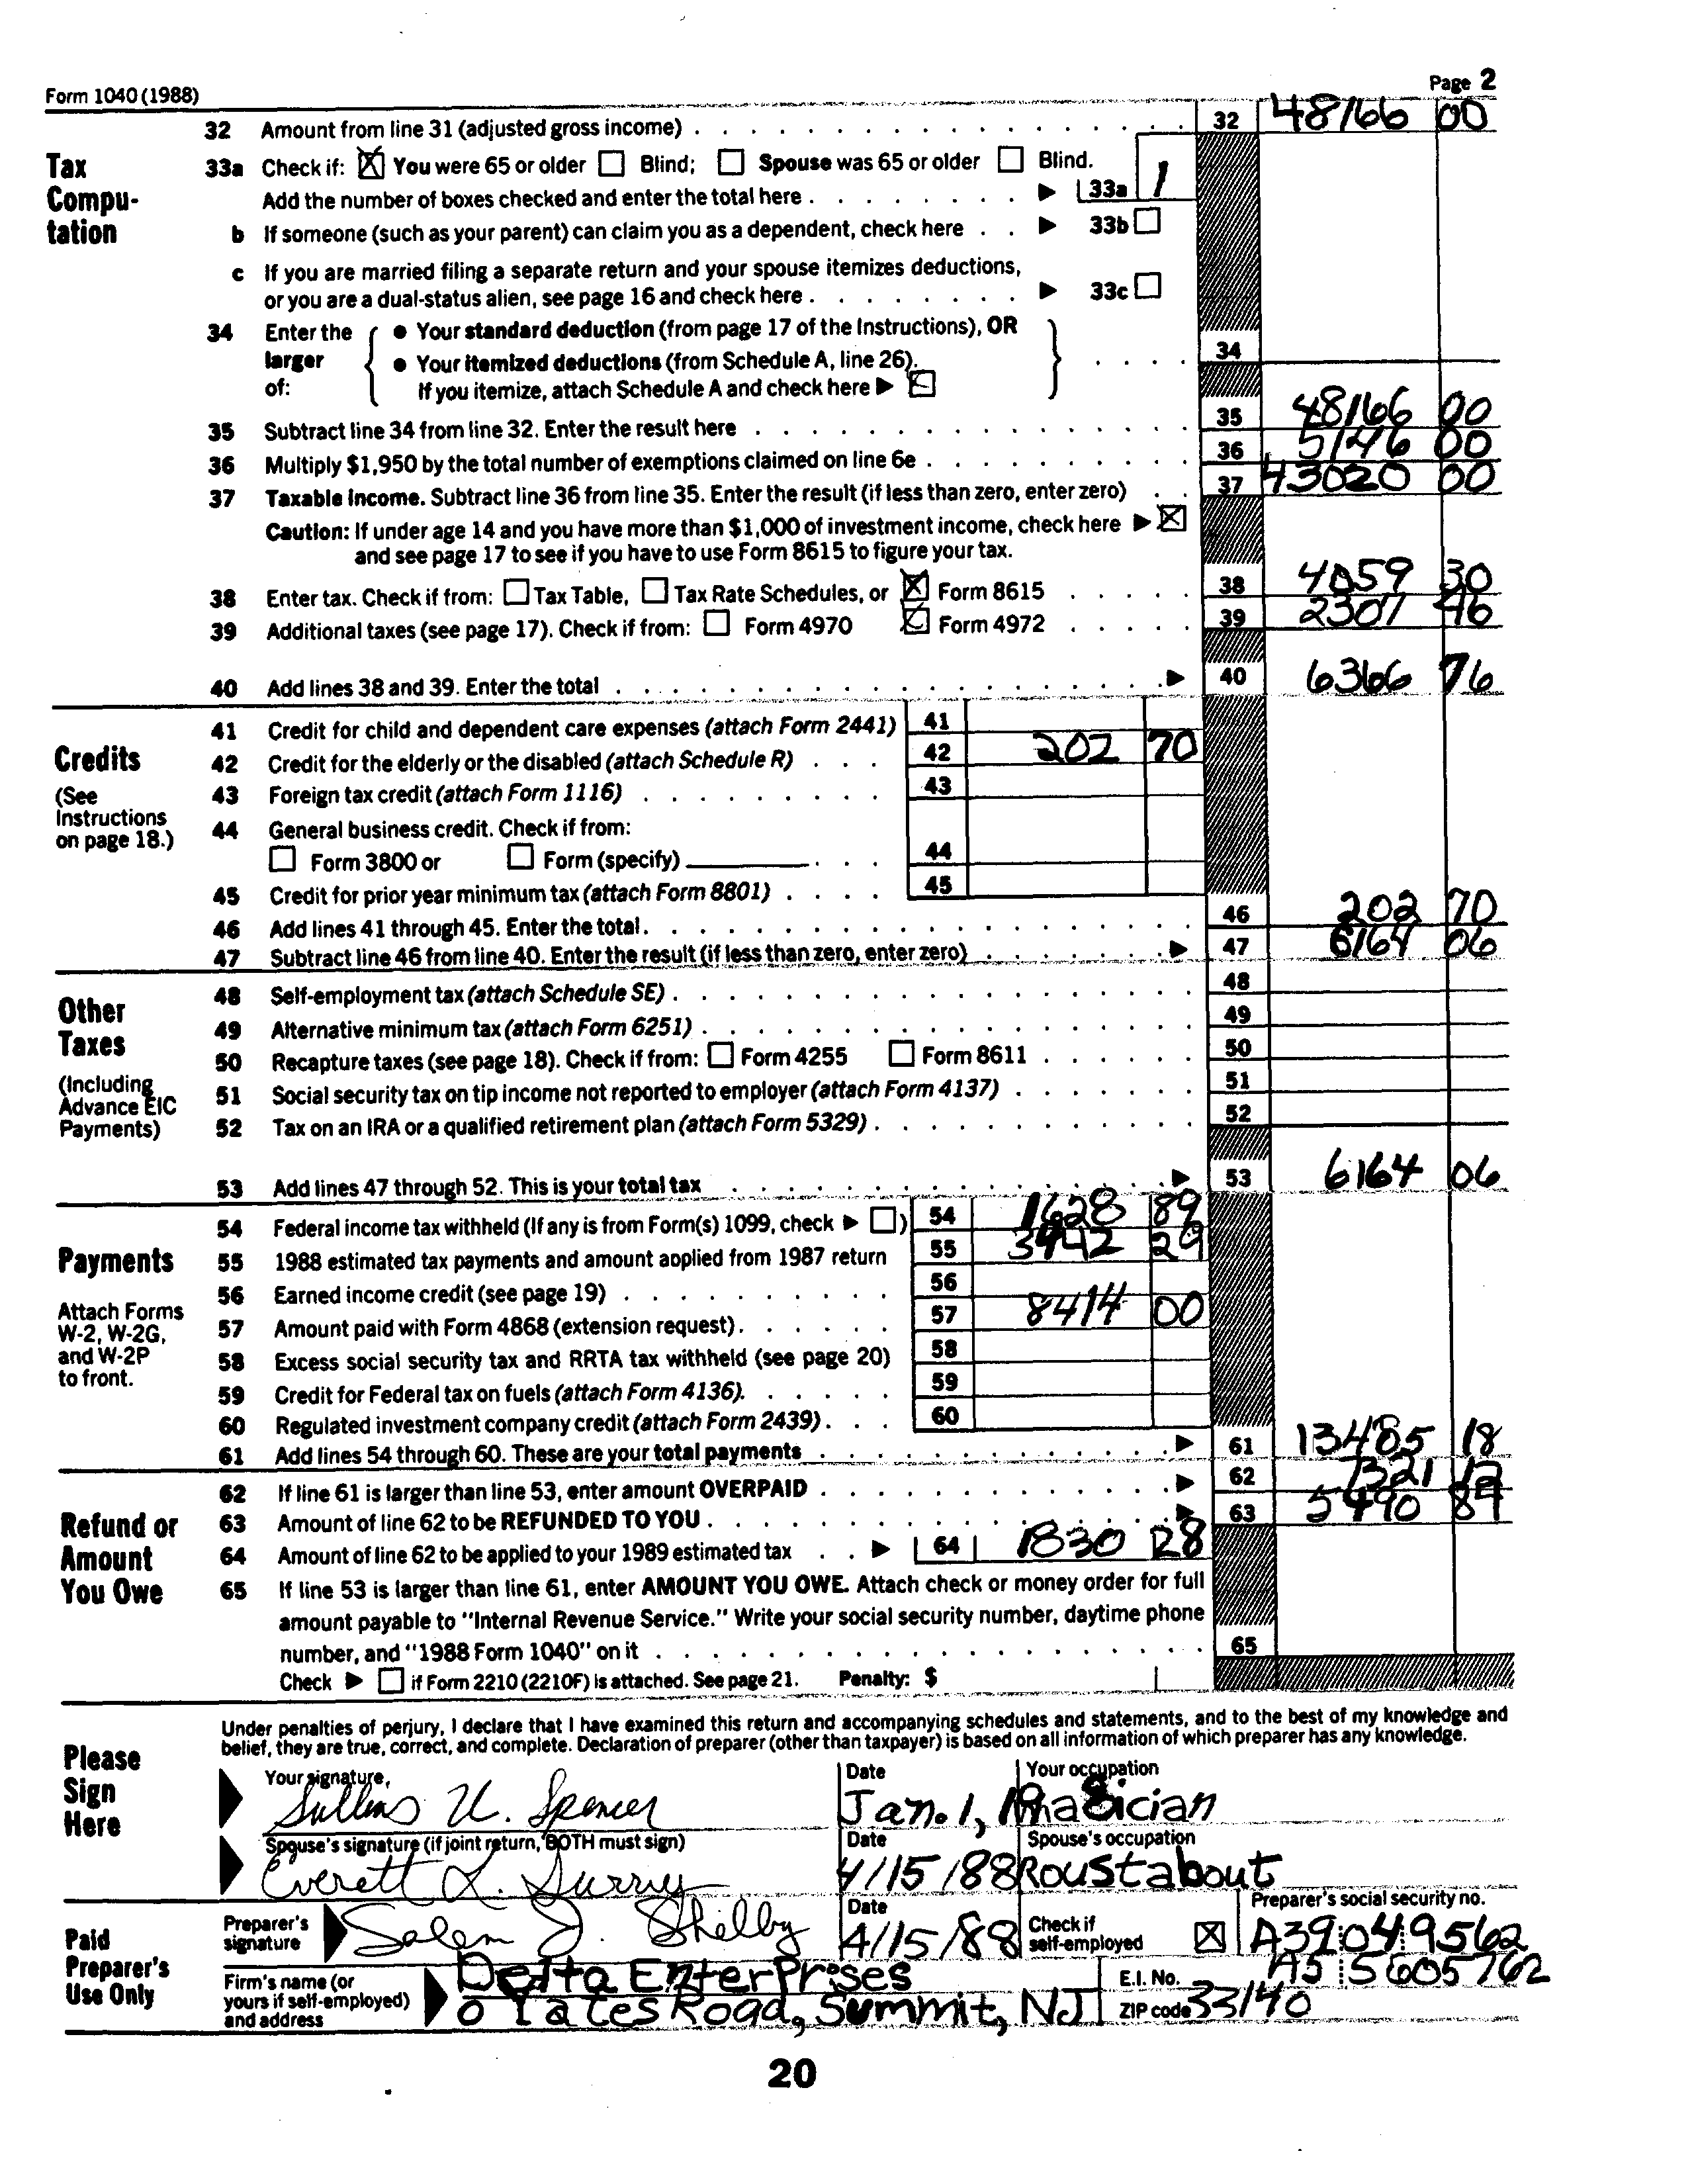 Form 1040 (1988) Page 2
32 Amount from line 31 (adjusted gross income) 32 48166 00
Tax Compu-tation
33a Check if: ☒ You were 65 or older ☐ Blind; ☐ Spouse was 65 or older ☐ Blind.
Add the number of boxes checked and enter the total here ▶ 33a 1
b If someone (such as your parent) can claim you as a dependent, check here ▶ 33b ☐
c If you are married filing a separate return and your spouse itemizes deductions,
or you are a dual-status alien, see page 16 and check here ▶ 33c ☐
34 Enter the larger of: { ● Your standard deduction (from page 17 of the Instructions), OR
● Your itemized deductions (from Schedule A, line 26). } 34
If you itemize, attach Schedule A and check here ▶ ☒
35 Subtract line 34 from line 32. Enter the result here 35 48166 00
36 Multiply $1,950 by the total number of exemptions claimed on line 6e 36 5146 00
37 Taxable income. Subtract line 36 from line 35. Enter the result (if less than zero, enter zero) 37 43020 00
Caution: If under age 14 and you have more than $1,000 of investment income, check here ▶ ☒
and see page 17 to see if you have to use Form 8615 to figure your tax.
38 Enter tax. Check if from: ☐ Tax Table, ☐ Tax Rate Schedules, or ☒ Form 8615 38 4059 30
39 Additional taxes (see page 17). Check if from: ☐ Form 4970 ☒ Form 4972 39 2307 46
40 Add lines 38 and 39. Enter the total ▶ 40 6366 76
Credits
(See Instructions on page 18.)
41 Credit for child and dependent care expenses (attach Form 2441) 41
42 Credit for the elderly or the disabled (attach Schedule R) 42 202 70
43 Foreign tax credit (attach Form 1116) 43
44 General business credit. Check if from:
☐ Form 3800 or ☐ Form (specify) 44
45 Credit for prior year minimum tax (attach Form 8801) 45
46 Add lines 41 through 45. Enter the total. 46 202 70
47 Subtract line 46 from line 40. Enter the result (if less than zero, enter zero) ▶ 47 6164 06
Other Taxes
(Including Advance EIC Payments)
48 Self-employment tax (attach Schedule SE) 48
49 Alternative minimum tax (attach Form 6251) 49
50 Recapture taxes (see page 18). Check if from: ☐ Form 4255 ☐ Form 8611 50
51 Social security tax on tip income not reported to employer (attach Form 4137) 51
52 Tax on an IRA or a qualified retirement plan (attach Form 5329) 52
53 Add lines 47 through 52. This is your total tax ▶ 53 6164 06
Payments
Attach Forms W-2, W-2G, and W-2P to front.
54 Federal income tax withheld (If any is from Form(s) 1099, check ▶ ☐) 54 1628 89
55 1988 estimated tax payments and amount applied from 1987 return 55 3442 29
56 Earned income credit (see page 19) 56
57 Amount paid with Form 4868 (extension request) 57 8414 00
58 Excess social security tax and RRTA tax withheld (see page 20) 58
59 Credit for Federal tax on fuels (attach Form 4136). 59
60 Regulated investment company credit (attach Form 2439) 60
61 Add lines 54 through 60. These are your total payments ▶ 61 13485 18
Refund or Amount You Owe
62 If line 61 is larger than line 53, enter amount OVERPAID ▶ 62 7321 12
63 Amount of line 62 to be REFUNDED TO YOU ▶ 63 5490 84
64 Amount of line 62 to be applied to your 1989 estimated tax ▶ 64 1830 28
65 If line 53 is larger than line 61, enter AMOUNT YOU OWE. Attach check or money order for full
amount payable to "Internal Revenue Service." Write your social security number, daytime phone
number, and "1988 Form 1040" on it 65
Check ▶ ☐ if Form 2210 (2210F) is attached. See page 21. Penalty: $
Please Sign Here
Under penalties of perjury, I declare that I have examined this return and accompanying schedules and statements, and to the best of my knowledge and
belief, they are true, correct, and complete. Declaration of preparer (other than taxpayer) is based on all information of which preparer has any knowledge.
Your signature, Date Your occupation
Sullins U. Spencer Jan. 1, Magician
Spouse's signature (if joint return, BOTH must sign) Date Spouse's occupation
Everett L. Surry 4/15/88 Roustabout
Paid Preparer's Use Only
Preparer's signature Salem J. Shelby Date 4/15/88 Check if self-employed ☒ Preparer's social security no. A39049562
Firm's name (or yours if self-employed) and address Delta Enterprises E.I. No. A5 5605762
0 Yates Road, Summit, NJ ZIP code 33140
20